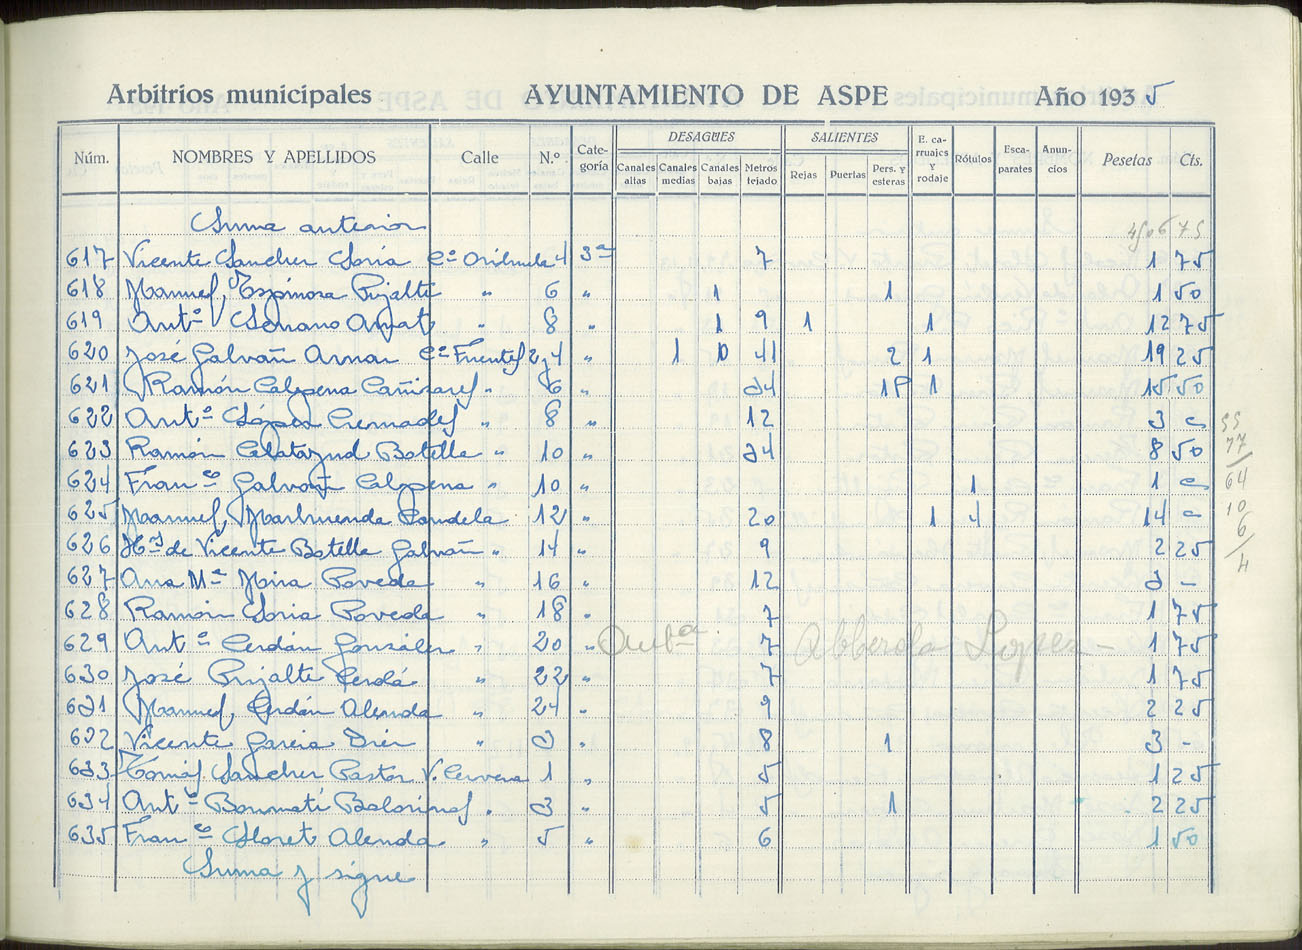 Arbitrios municipales AYUNTAMIENTO DE ASPE Año 1935
Núm. NOMBRES Y APELLIDOS Calle N.º Cate-goría DESAGÜES Canales altas Canales medias Canales bajas Metros tejado SALIENTES Rejas Puertas Pers. y esteras E. ca-rruajes y rodaje Rótulos Esca-parates Anun-cios Pesetas Cts.
Suma anterior 4506 75
617 Vicente Sanchez Soria Cª Orihuela 4 3ª 7 1 75
618 Manuel Espinosa Pujalte " 6 " 1 1 1 50
619 Antº Soriano " 8 " 1 9 1 1 12 75
620 José Galvañ Aznar Cª Fuentes 2 y 4 " 1 10 41 2 1 19 25
621 Ramón Calpena Cañizares " 6 " 34 1P 1 15 50
622 Antº López Cremades " 8 " 12 3
623 Ramón Calatayud Botella " 10 " 34 8 50
624 Franco Galvañ Calpena " 10 " 1 1
625 Manuel Marhuenda Candela " 12 " 20 1 4 14 -
626 Hros de Vicente Botella Galvañ " 14 " 9 2 25
627 Ana Mª Mira Poveda " 16 " 12 3 -
628 Ramón Soria Poveda " 18 " 7 1 75
629 Antº Cerdán González " 20 " Antª 7 Abberola Lopez - 1 75
630 José Pujalte Cerdá " 22 " 7 1 75
631 Manuel Cerdán Alenda " 24 " 9 2 25
632 Vicente Garcia " 3 " 8 1 3 -
633 Tomás Sanchez Pastor V. Cervera 1 " 5 1 25
634 Antº Bonmatí " 3 " 5 1 2 25
635 Franco Lloret Alenda " 5 " 6 1 50
Suma y sigue
55
77
64
10
6
4